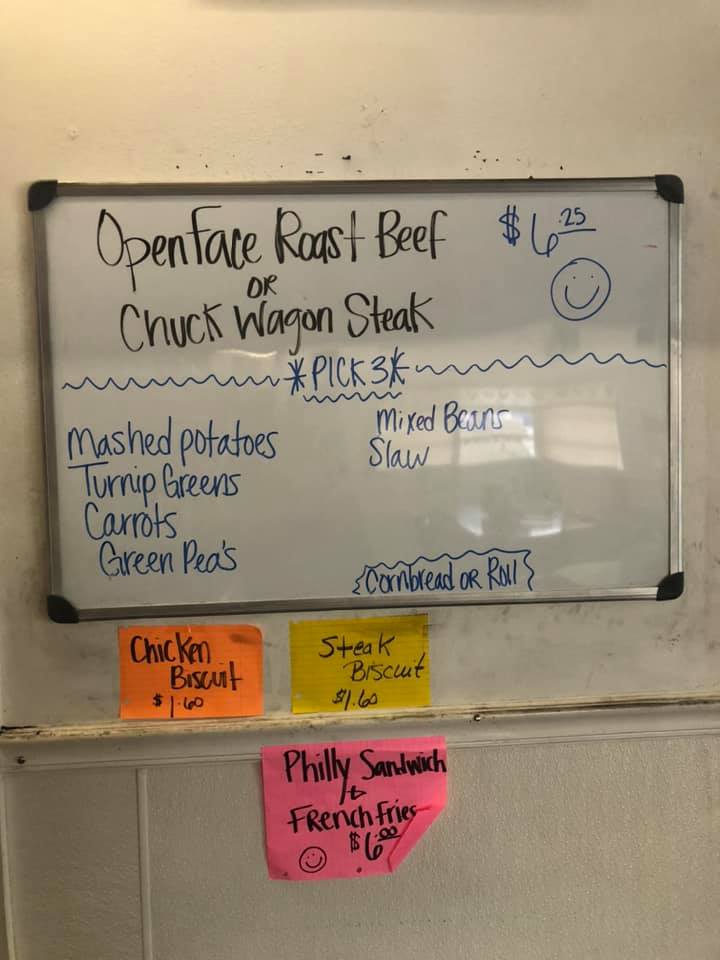 Open Face Roast Beef $6.25
or
Chuck Wagon Steak
*PICK 3*
Mashed potatoes
Turnip Greens
Carrots
Green Pea's
Mixed Beans
Slaw
Cornbread or Roll
Chicken
Biscuit
$1.60
Steak
Biscuit
$1.60
Philly Sandwich
+
French Fries
$6.00